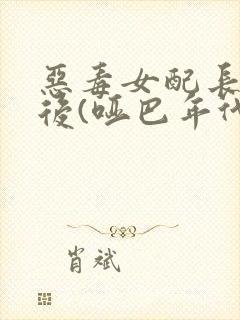 惡毒女配長
後(啞巴年代
肖斌